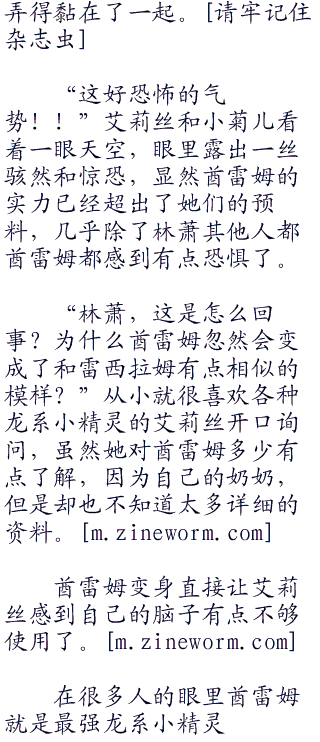 弄得黏在了一起。[请牢记住
杂志虫]
“这好恐怖的气
势！！”艾莉丝和小菊儿看
着一眼天空，眼里露出一丝
骇然和惊恐，显然酋雷姆的
实力已经超出了她们的预
料，几乎除了林萧其他人都
酋雷姆都感到有点恐惧了。
“林萧，这是怎么回
事？为什么酋雷姆忽然会变
成了和雷西拉姆有点相似的
模样？”从小就很喜欢各种
龙系小精灵的艾莉丝开口询
问，虽然她对酋雷姆多少有
点了解，因为自己的奶奶，
但是却也不知道太多详细的
资料。[m.zineworm.com]
酋雷姆变身直接让艾莉
丝感到自己的脑子有点不够
使用了。[m.zineworm.com]
在很多人的眼里酋雷姆
就是最强龙系小精灵